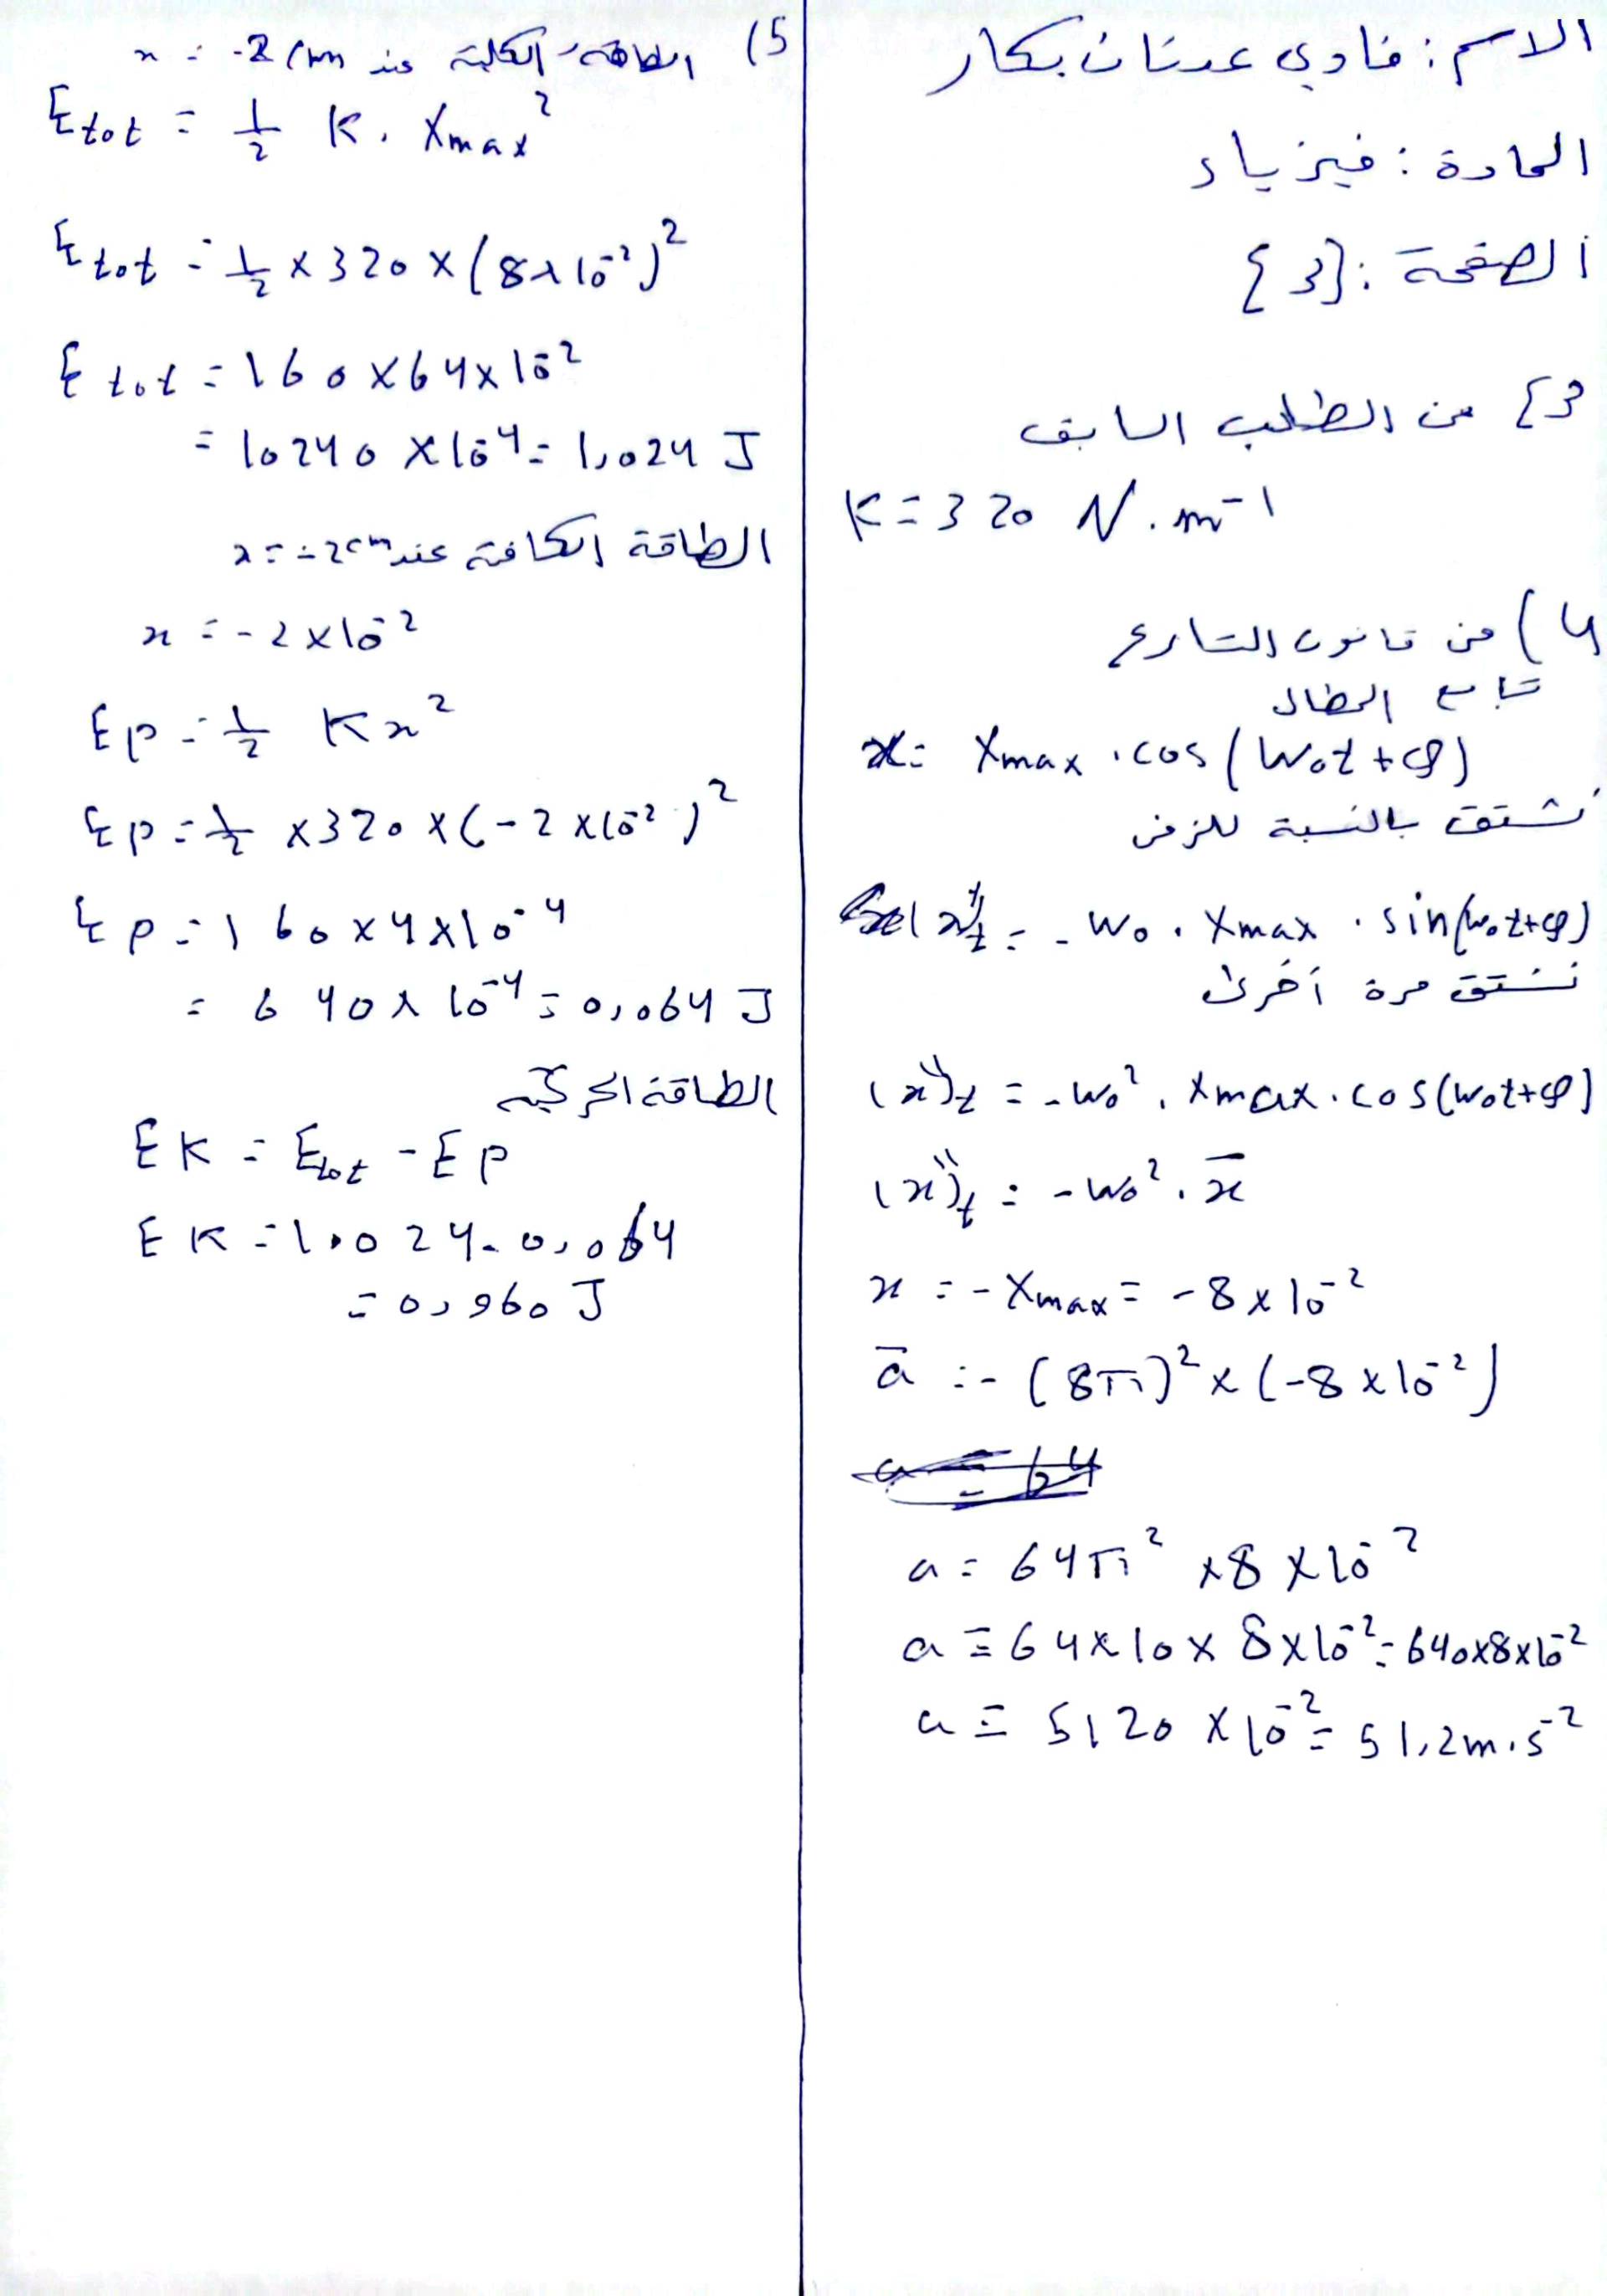 الاسم : فادي عدنان بكار
المادة : فيزياء
الصفحة : {3}
3} من الطلب السابق
K = 320 N . m⁻¹
4) من قانون التسارع
تابع المطال
x = Xmax . cos (ω₀t + φ)
نشتق بالنسبة للزمن
(x)'t = - ω₀ . Xmax . sin(ω₀t+φ)
نشتق مرة أخرى
(x)''t = - ω₀² . Xmax . cos(ω₀t+φ)
(x)''t = - ω₀² . x̄
x = - Xmax = - 8 × 10⁻²
ā = - (8π)² × (-8 × 10⁻²)
a = 64
a = 64π² × 8 × 10⁻²
a = 64 × 10 × 8 × 10⁻² = 640×8×10⁻²
a = 5120 × 10⁻² = 51,2 m.s⁻²
5) الطاقة الكلية عند x = -2 cm
Etot = 1/2 K . Xmax²
Etot = 1/2 × 320 × (8×10⁻²)²
Etot = 160 × 64 × 10⁻²
= 10240 × 10⁻⁴ = 1,024 J
الطاقة الكافتة عند x = -2cm
x = - 2 × 10⁻²
Ep = 1/2 K x²
Ep = 1/2 × 320 × (- 2 × 10⁻²)²
Ep = 160 × 4 × 10⁻⁴
= 640 × 10⁻⁴ = 0,064 J
الطاقة الحركية
EK = Etot - Ep
EK = 1,024 - 0,064
= 0,960 J